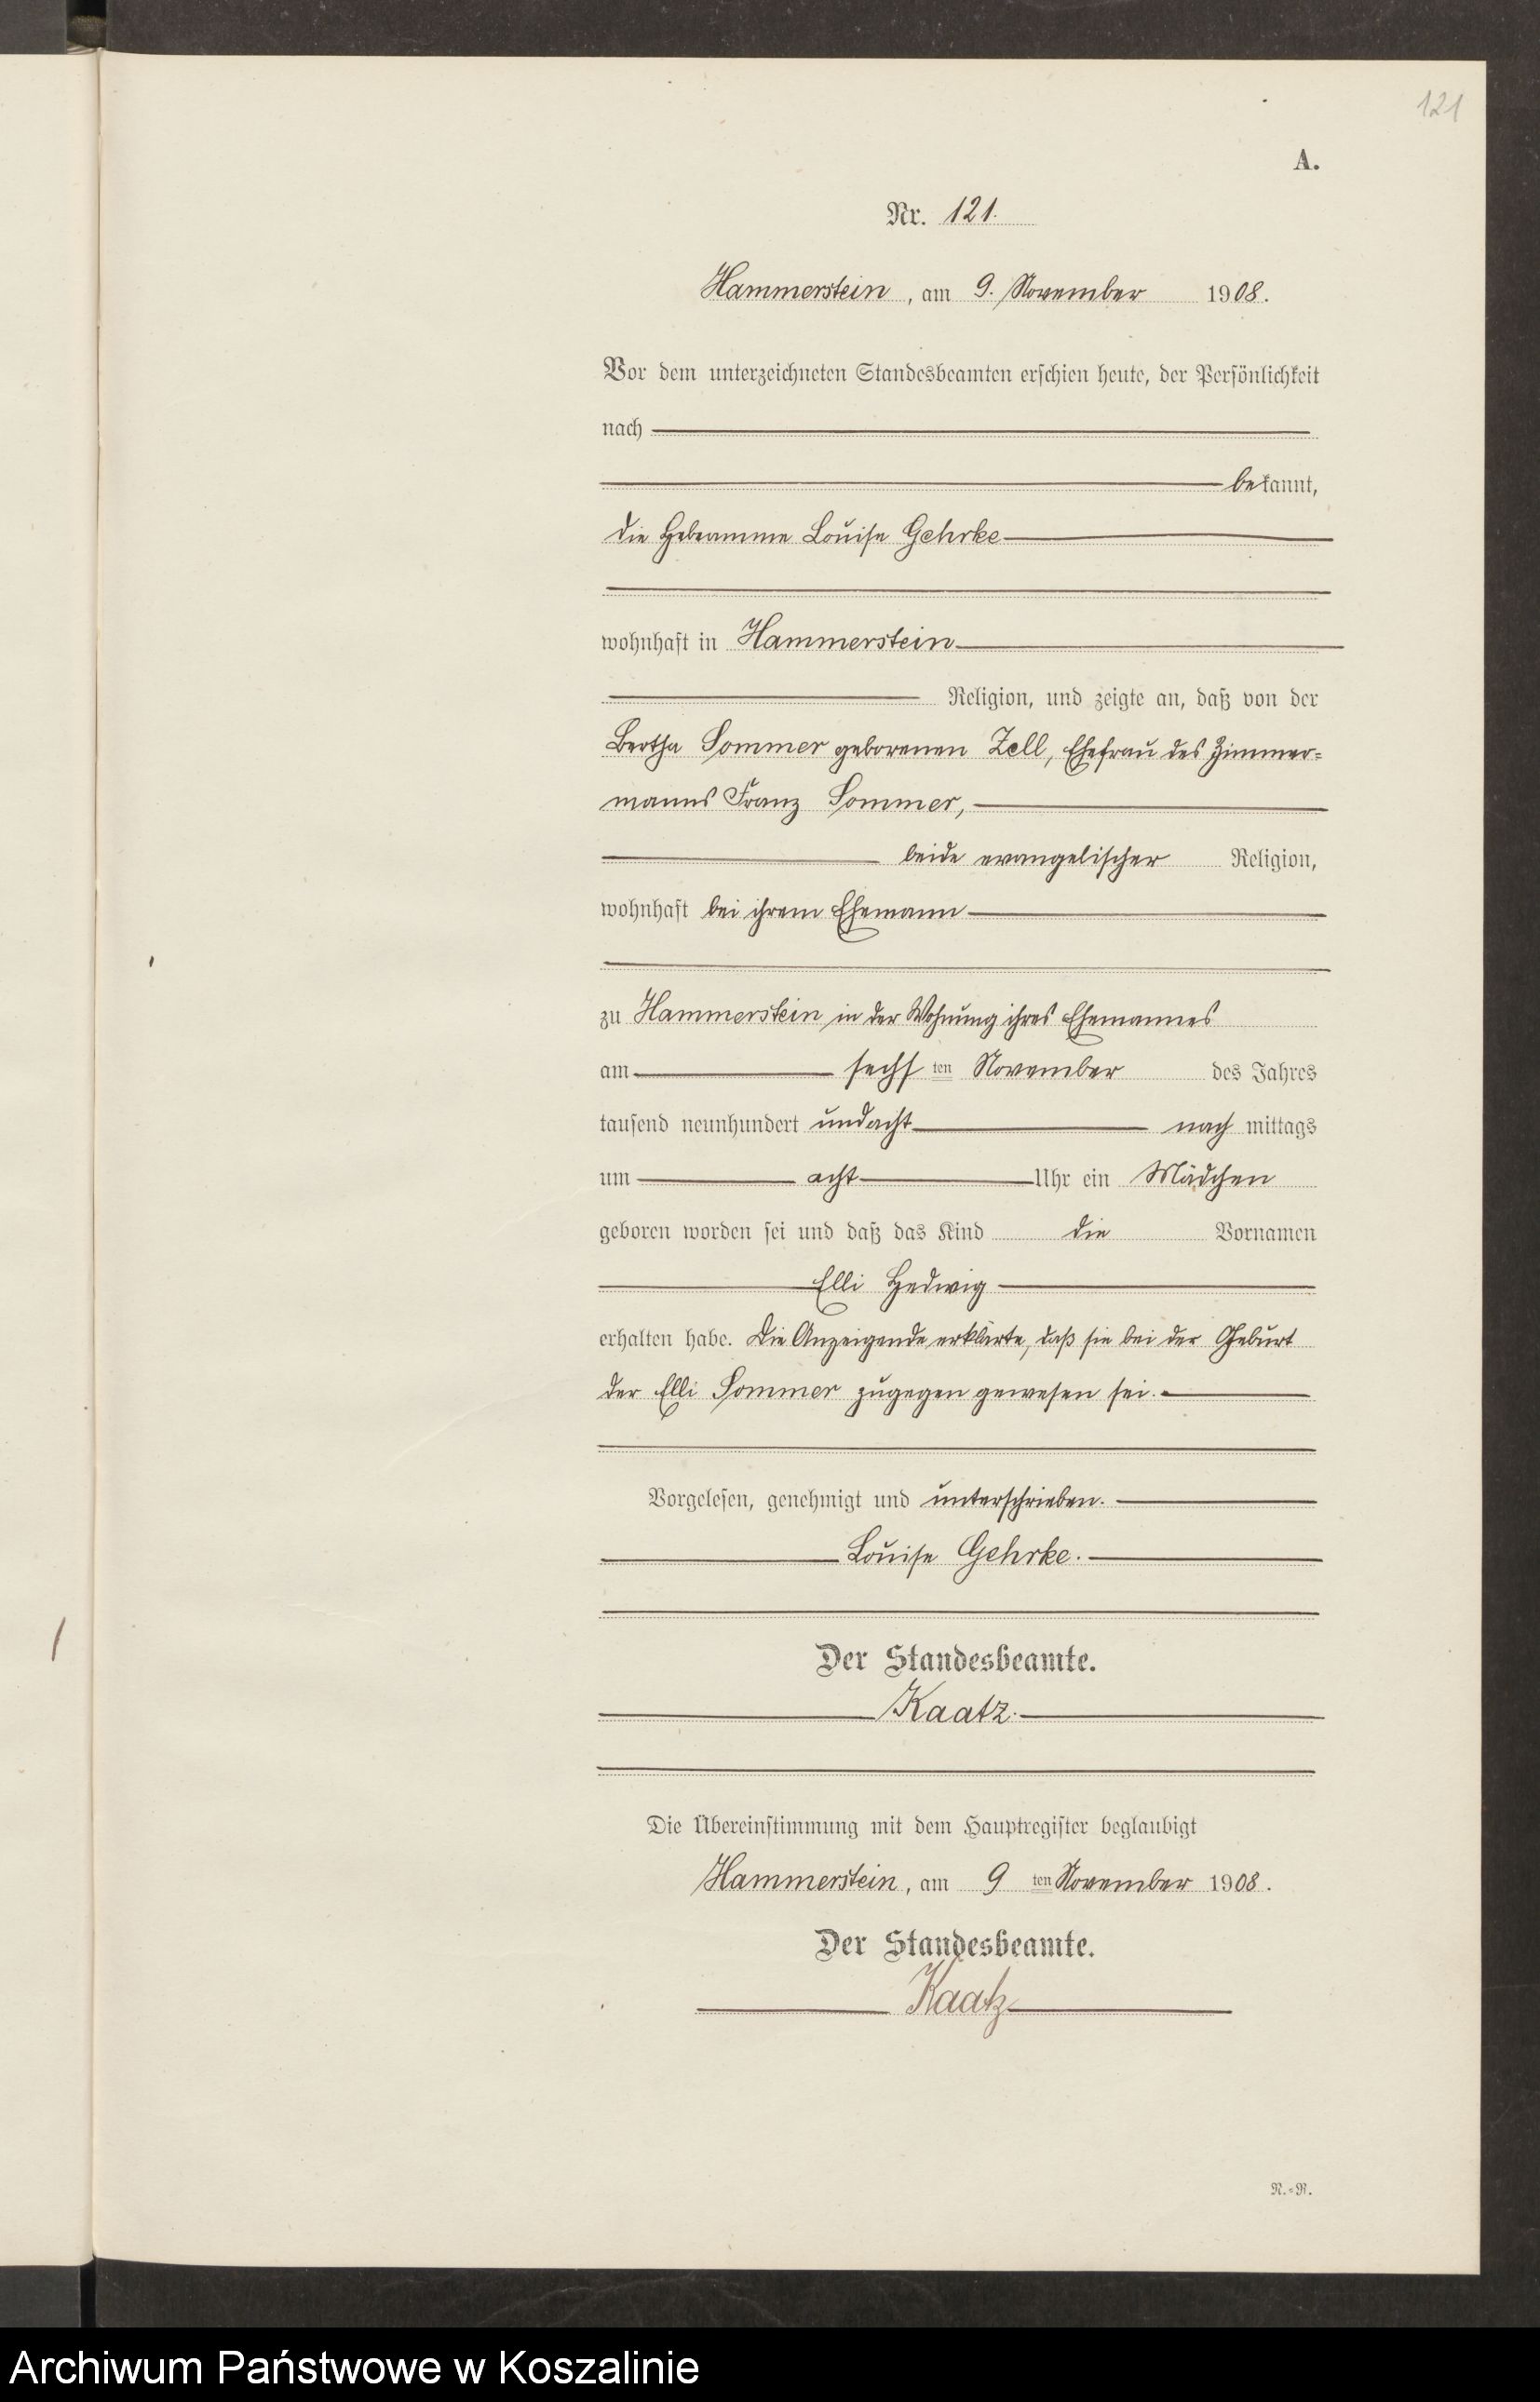 121
A.
Nr. 121.
Hammerstein, am 9. November 1908.
Vor dem unterzeichneten Standesbeamten erschien heute, der Persönlichkeit
nach
bekannt,
die Hebeamme Louise Gehrke
wohnhaft in Hammerstein
Religion, und zeigte an, daß von der
Bertha Sommer geborenen Zell, Ehefrau des Zimmer=
manns Franz Sommer,
beide evangelischer Religion,
wohnhaft bei ihrem Ehemann
zu Hammerstein in der Wohnung ihres Ehemannes
am sechsten November des Jahres
tausend neunhundert undacht nachmittags
um acht Uhr ein Mädchen
geboren worden sei und daß das Kind die Vornamen
Elli Hedwig
erhalten habe. Die Anzeigende erklärte, daß sie bei der Geburt
der Elli Sommer zugegen gewesen sei.
Vorgelesen, genehmigt und unterschrieben.
Louise Gehrke.
Der Standesbeamte.
Kaatz.
Die Übereinstimmung mit dem Hauptregister beglaubigt
Hammerstein, am 9ten November 1908.
Der Standesbeamte.
Kaatz
N.=R.
Archiwum Państwowe w Koszalinie